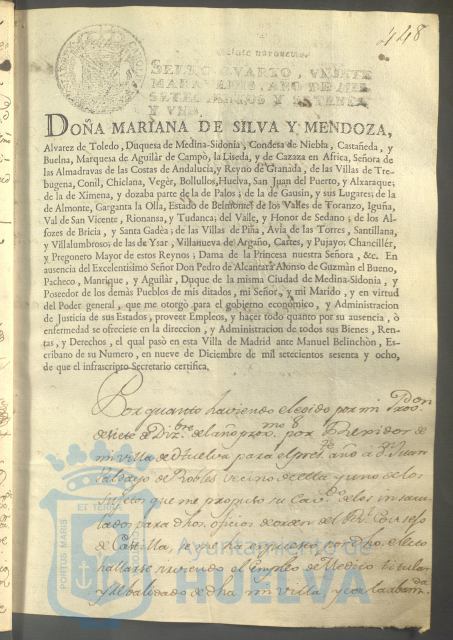 448
SELLO QUARTO, VEINTE
MARAVEDIS, AÑO DE MIL
SETECIENTOS Y SETENTA
Y UNO.
DOÑA MARIANA DE SILVA Y MENDOZA,
Alvarez de Toledo, Duquesa de Medina-Sidonia, Condesa de Niebla, Castañeda, y
Buelna, Marquesa de Aguilàr de Campò, la Liseda, y de Cazaza en Africa, Señora de
las Almadravas de las Costas de Andalucìa, y Reyno de Granada, de las Villas de Tre-
bugena, Conil, Chiclana, Vegèr, Bollullos, Huelva, San Juan del Puerto, y Alxaraque;
de la de Ximena, y dozaba parte de la de Palos; de la de Gausin, y sus Lugares; de la
de Almonte, Garganta la Olla, Estado de Belmonte; de los Valles de Toranzo, Iguña,
Val de San Vicente, Rionansa, y Tudanca; del Valle, y Honor de Sedano; de los Al-
fozes de Bricia, y Santa Gadèa; de las Villas de Piña, Avia de las Torres, Santillana,
y Villalumbroso; de las de Ysar, Villanueva de Argaño, Cartes, y Pujayo; Chancillèr,
y Pregonero Mayor de estos Reynos; Dama de la Princesa nuestra Señora, &c. En
ausencia del Excelentisimo Señor Don Pedro de Alcantara Alonso de Guzmàn el Bueno,
Pacheco, Manrique, y Aguilàr, Duque de la misma Ciudad de Medina-Sidonia, y
Poseedor de los demàs Pueblos de mis ditados, mi Señor, y mi Marido, y en virtud
del Poder general, que me otorgò para el gobierno economico, y Administracion
de Justicia de sus Estados, proveer Empleos, y hacer todo quanto por su ausencia, ò
enfermedad se ofreciese en la direccion, y Administracion de todos sus Bienes, Ren-
tas, y Derechos, el qual pasò en esta Villa de Madrid ante Manuel Belinchòn, Es-
cribano de su Numero, en nueve de Diciembre de mil setecientos sesenta y ocho,
de que el infrascripto Secretario certifica,
Por quanto haviendo elegido por mi Prov.on
de siete de Diz.bre del año prox.mo por Regidor de
mi villa de Huelva para el pres.te año a D.n Juan
de Robles vecino de ella y uno de los
sujetos que me propuso su Cav.do de los insacu-
lados para dhos. oficios de orden del R.l Consejo
de Castilla, se me ha expuesto por dho. electo
hallarse sirviendo el Empleo de Medico titular
de dha. mi Villa, y con la
Ayuntamiento de
HUELVA
PORTUS MARIS ET TERRAE